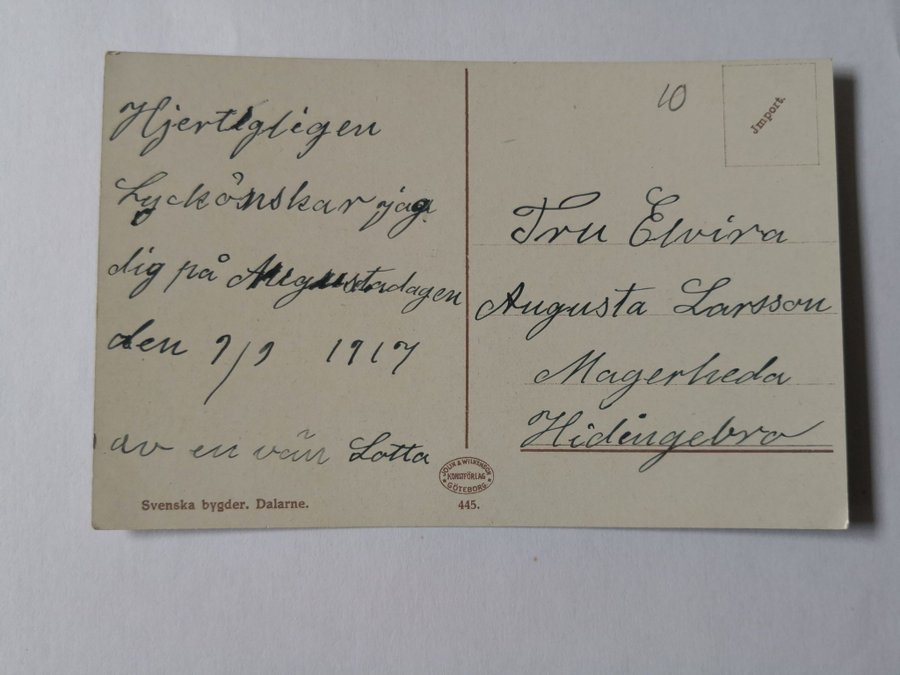 Hjertigligen
Lyckönskar jag
dig på Augustadagen
den 9/9 1917
av en vän Lotta
Svenska bygder. Dalarne.
JOLIN & WILKENSON
KONSTFÖRLAG
GÖTEBORG
445.
10
Import.
Fru Elvira
Augusta Larsson
Magerheda
Hidingebro